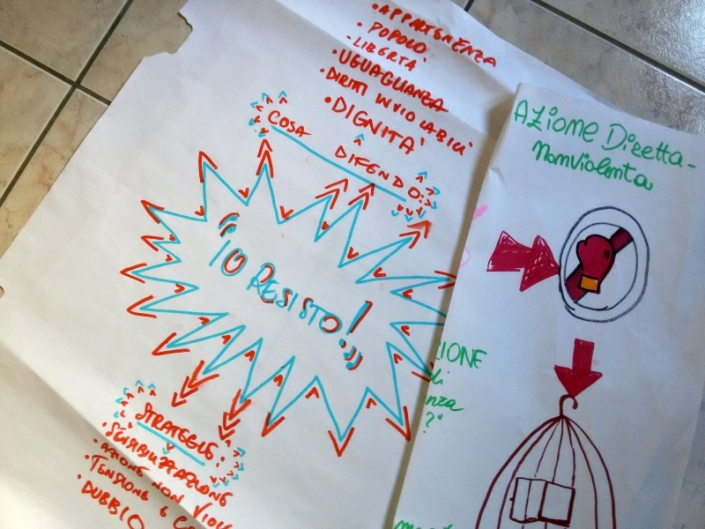 • APPARTENENZA
• POPOLO
• LIBERTÀ
• UGUAGLIANZA
• DIRITTI INVIOLABILI
• DIGNITÀ
COSA
DIFENDO:
"IO RESISTO!"
STRATEGIE:
• SENSIBILIZZAZIONE
• AZIONE NON VIOL
• TENSIONE E CO
• DUBBIO
AZIONE DIRETTA-
NONVIOLENTA
ZIONE
di
nza
?"